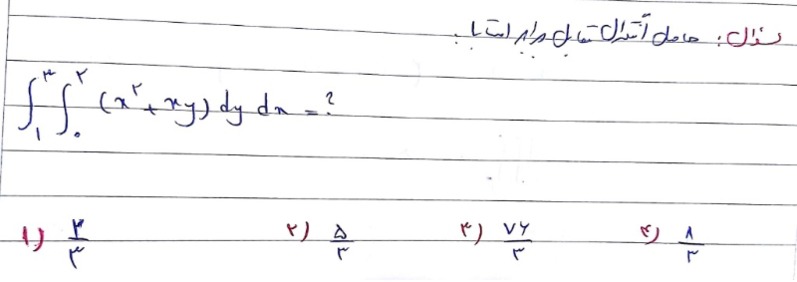 سوال: حاصل انتگرال مقابل برابر است با.
∫₁^۳ ∫₀^۲ (x^۲ + xy) dy dx = ?
۱) ۲/۳ ۲) ۵/۳ ۳) ۷۶/۳ ۴) ۸/۳